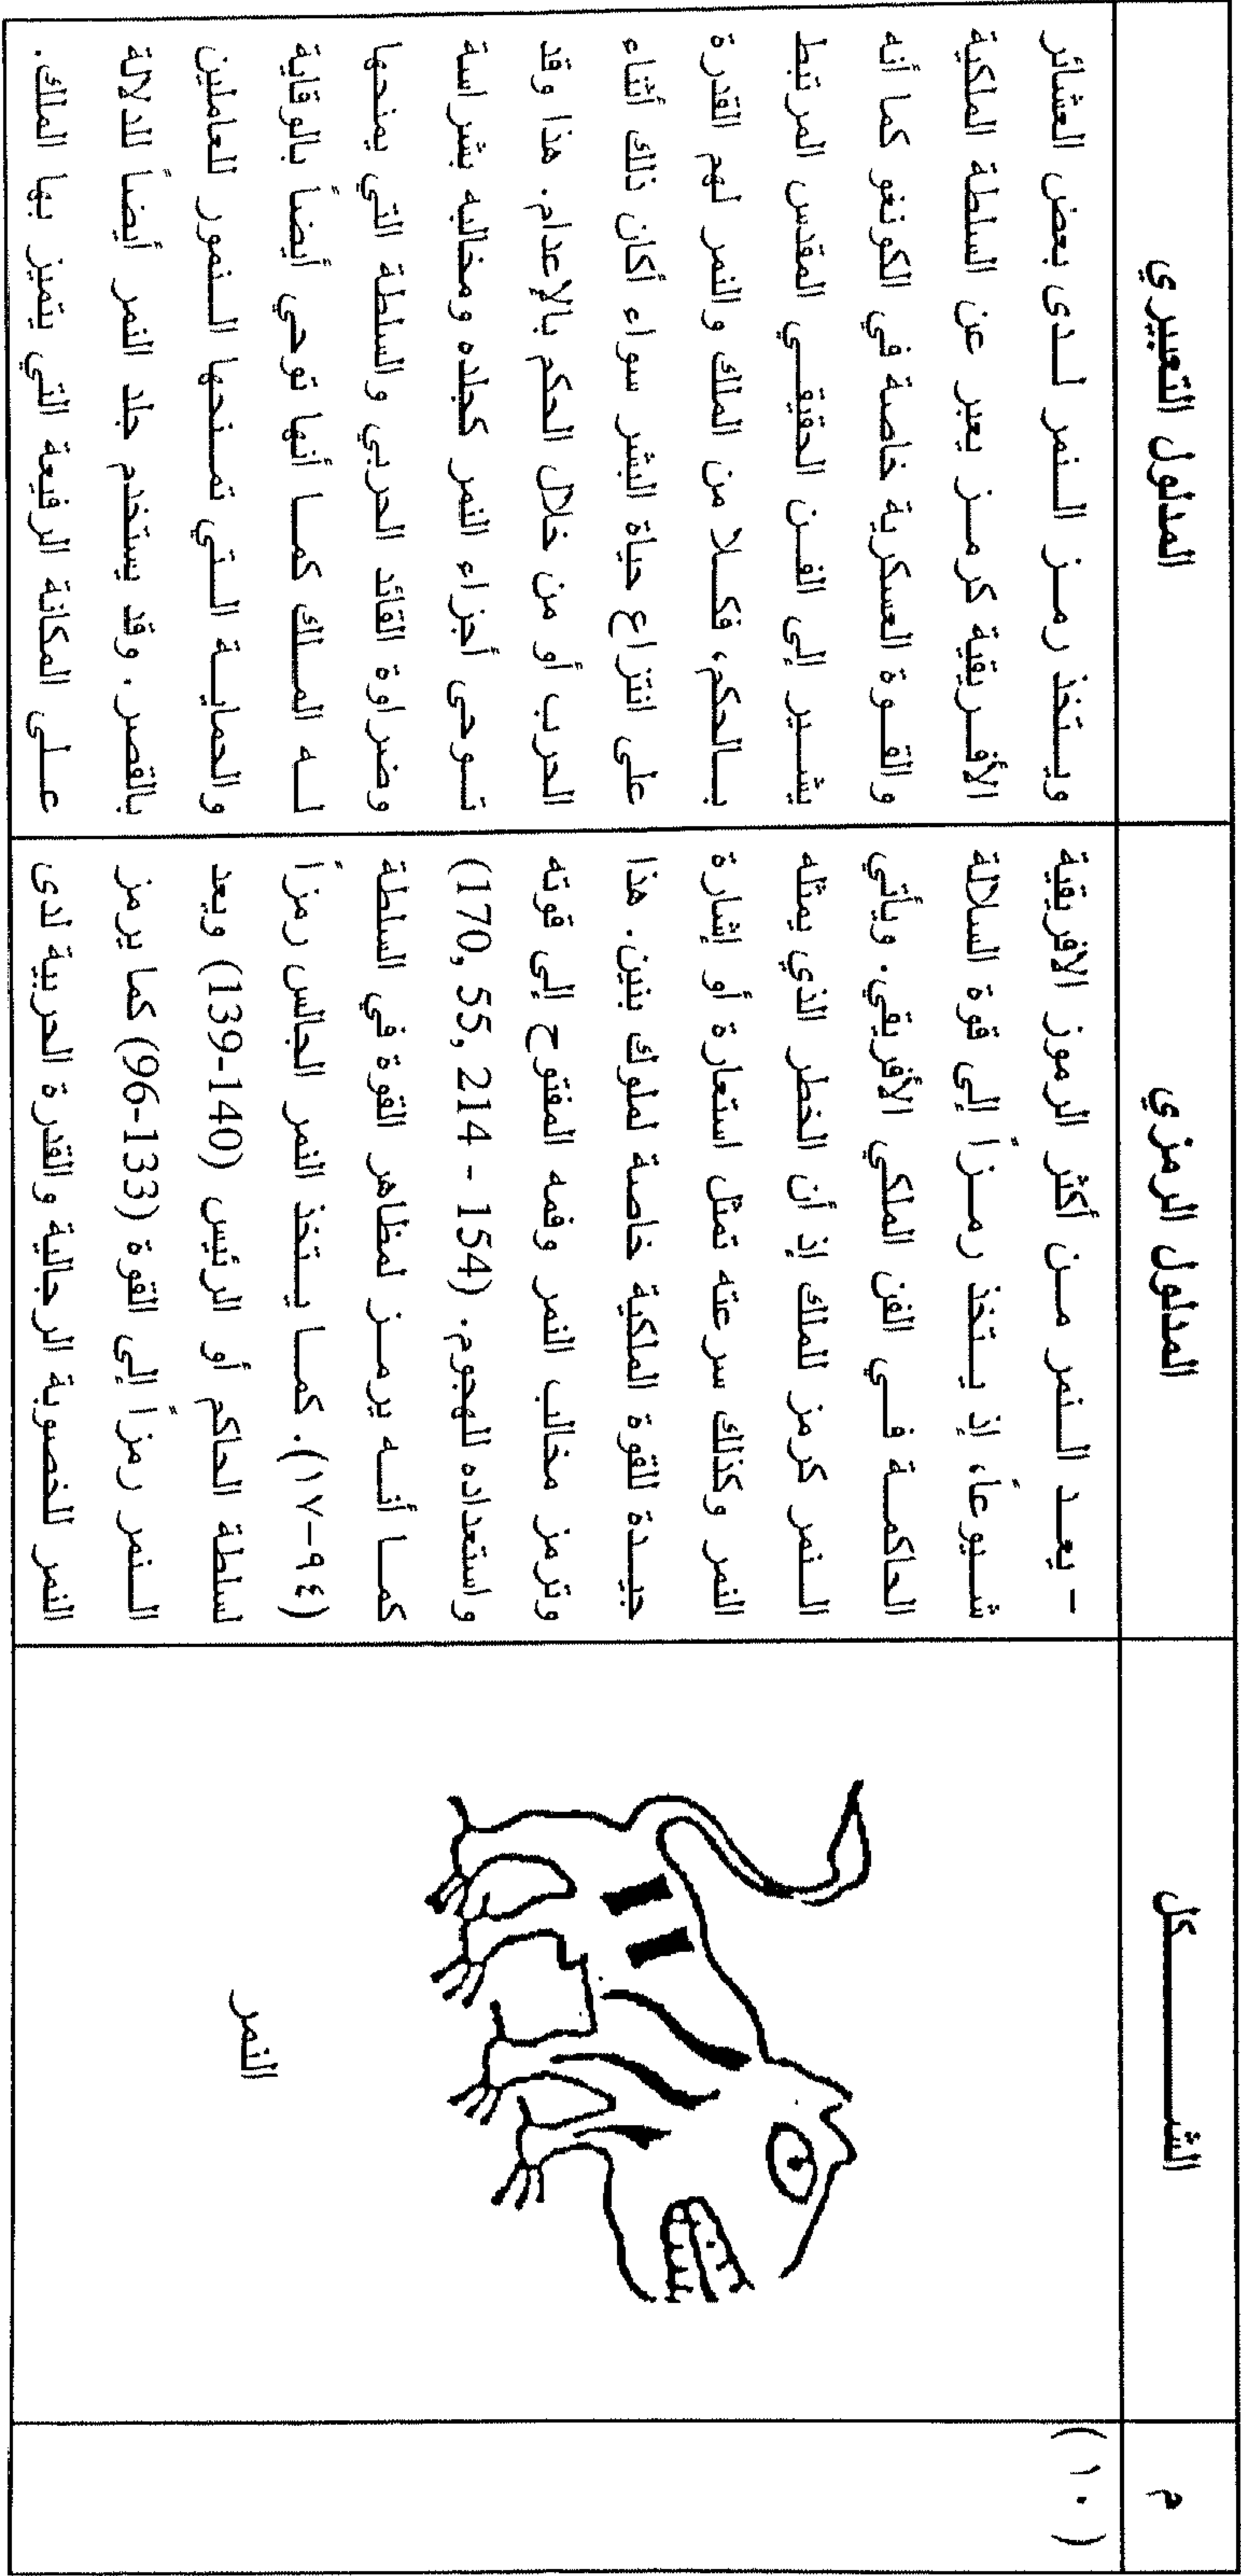 م
الشكل
المدلول الرمزي
المدلول التعبيري
(١٠)
النمر
- يعد النمر من أكثر الرموز الافريقية
شيوعاً، إذ يتخذ رمزاً إلى قوة السلالة
الحاكمة في الفن الملكي الأفريقي. ويأتي
النمر كرمز للملك إذ أن الخطر الذي يمثله
النمر وكذلك سرعته تمثل استعارة أو إشارة
جيدة للقوة الملكية خاصة لملوك بنين. هذا
وترمز مخالب النمر وفمه المفتوح إلى قوته
واستعداده للهجوم. (170, 55, 214 - 154)
كما أنه يرمز لمظاهر القوة في السلطة
(٩٤-١٧). كما يتخذ النمر الجالس رمزاً
لسلطة الحاكم أو الرئيس (139-140) ويعد
النمر رمزاً إلى القوة (133-96) كما يرمز
النمر للخصوبة الرجالية والقدرة الحربية لدى
ويتخذ رمز النمر لدى بعض العشائر
الأفريقية كرمز يعبر عن السلطة الملكية
والقوة العسكرية خاصة في الكونغو كما أنه
يشير إلى الفن الحقيقي المقدس المرتبط
بالحكم، فكلا من الملك والنمر لهم القدرة
على انتزاع حياة البشر سواء أكان ذلك أثناء
الحرب أو من خلال الحكم بالإعدام. هذا وقد
توحى أجزاء النمر كجلده ومخالبه بشراسة
وضراوة القائد الحربي والسلطة التي يمنحها
له الملك كما أنها توحي أيضاً بالوقاية
والحماية التي تمنحها النمور للعاملين
بالقصر. وقد يستخدم جلد النمر أيضاً للدلالة
على المكانة الرفيعة التي يتميز بها الملك.